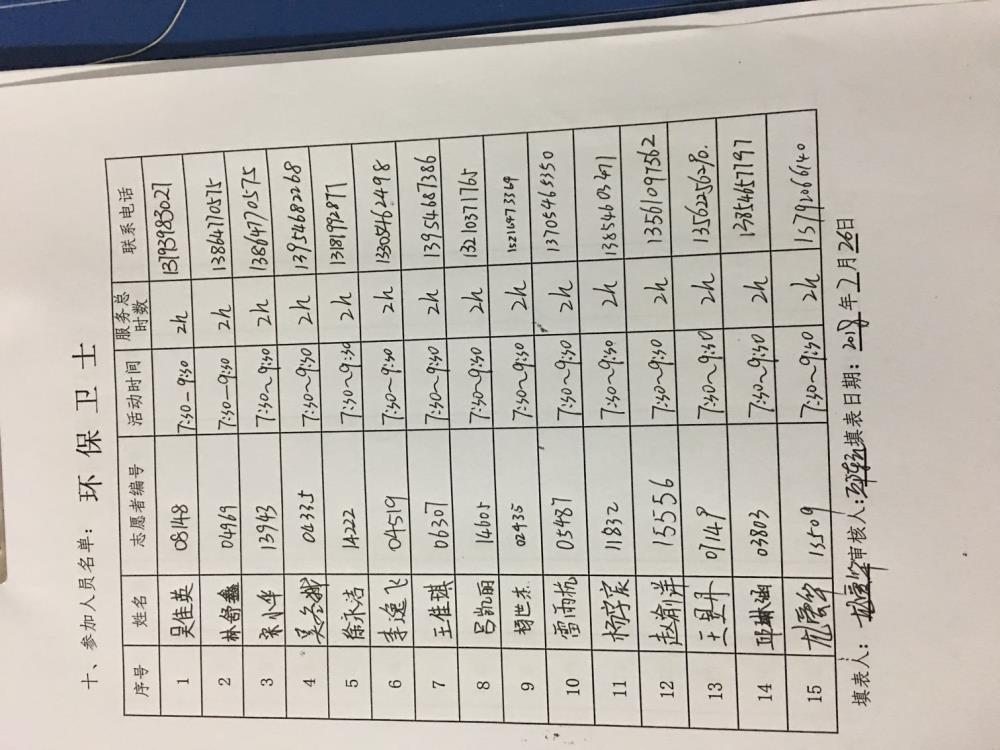 十、参加人员名单：环保卫士
序号 姓名 志愿者编号 活动时间 服务总时数 联系电话
1 吴佳英 08148 7:30—9:30 2h 13793983027
2 林舒鑫 04969 7:30—9:30 2h 13864770575
3 宋小华 13943 7:30~9:30 2h 13864770575
4 04335 7:30~9:30 2h 13954682268
5 徐永洁 14222 7:30~9:30 2h 13181992877
6 李逸飞 04519 7:30~9:30 2h 13305462498
7 王佳琪 06307 7:30~9:30 2h 13954687386
8 吕凯丽 14605 7:30~9:30 2h 13210371765
9 02935 7:30~9:30 2h 15216473369
10 雷雨杭 05487 7:30~9:30 2h 13705465350
11 杨宇宸 11832 7:30~9:30 2h 13854603471
12 赵海洋 15556 7:30~9:30 2h 13561097562
13 王昱丹 07149 7:30~9:30 2h
14 邱琳涵 03803 7:30~9:30 2h 13854657797
15 尤雪华 13509 7:30~9:30 2h 13792066140
填表人： 审核人： 填表日期：2018年2月26日